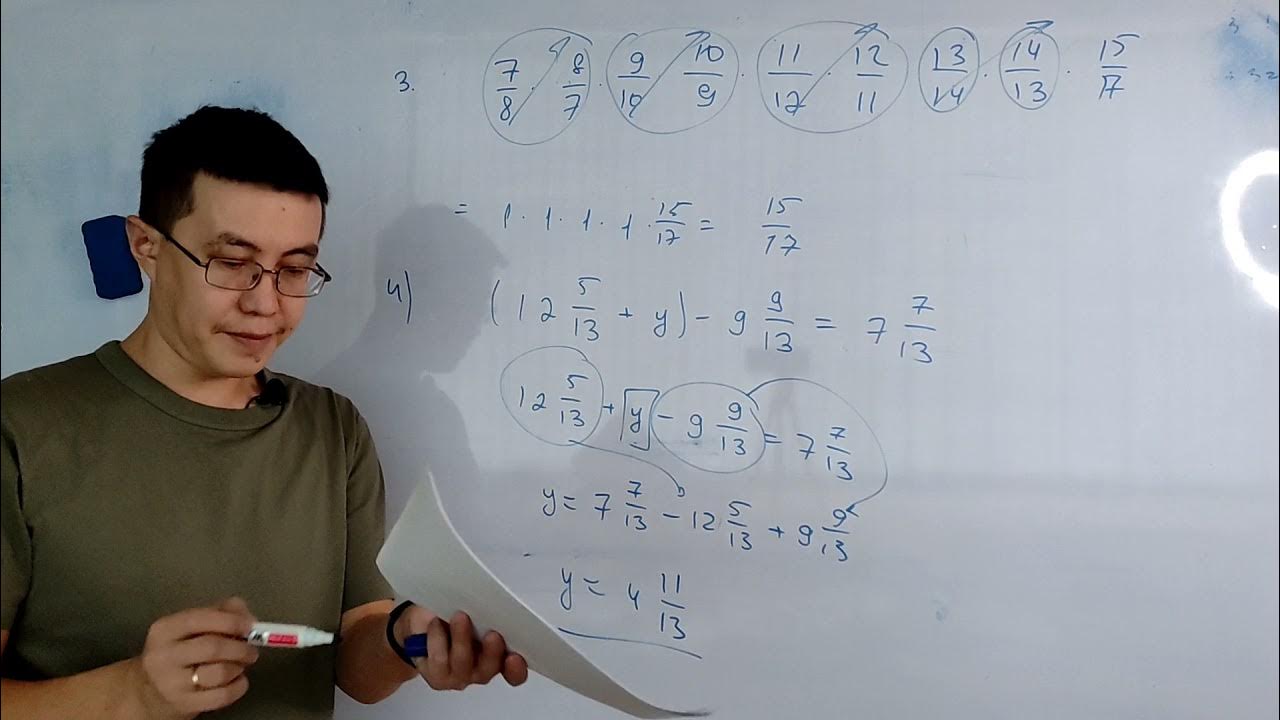 3. 7/8 · 8/7 · 9/10 · 10/9 · 11/12 · 12/11 · 13/14 · 14/13 · 15/17
= 1 · 1 · 1 · 1 · 15/17 = 15/17
4) (12 5/13 + y) - 9 9/13 = 7 7/13
12 5/13 + y - 9 9/13 = 7 7/13
y = 7 7/13 - 12 5/13 + 9 9/13
y = 4 11/13